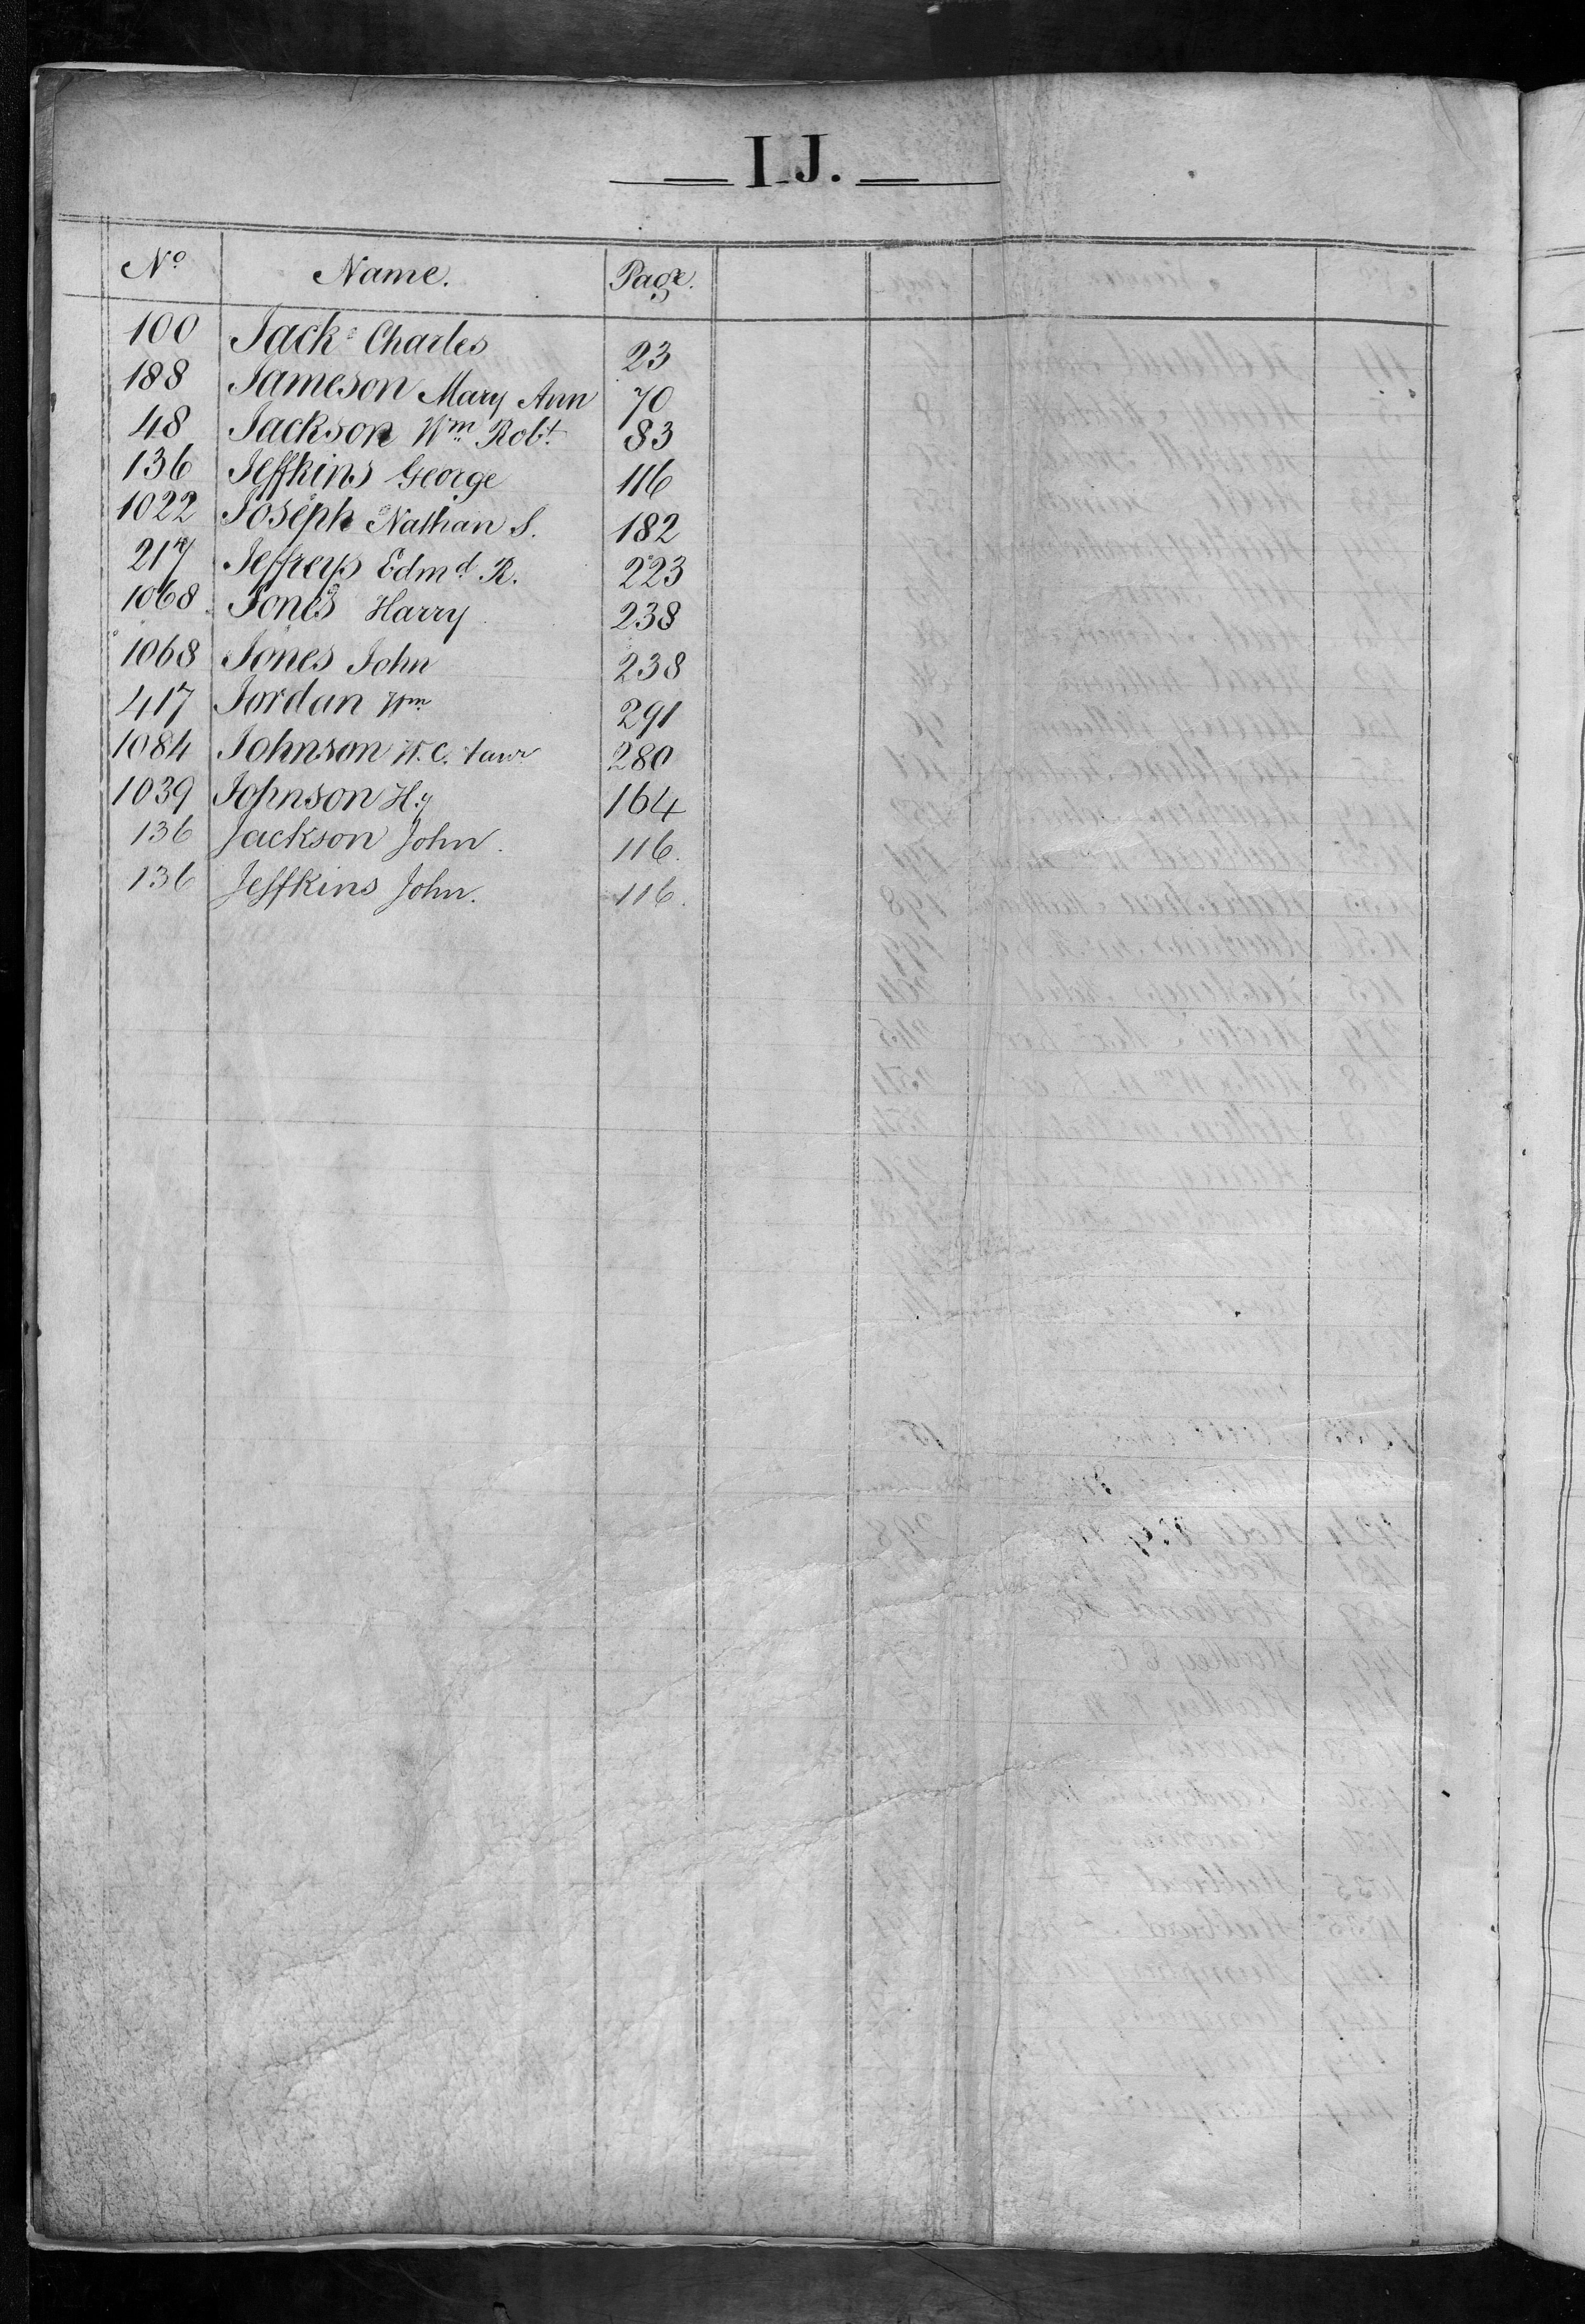 I J.
No Name. Page.
100 Jack Charles 23
188 Jameson Mary Ann 70
48 Jackson Wm Robt 83
136 Jeffkins George 116
1022 Joseph Nathan S. 182
217 Jeffreys Edmd R. 223
1068 Jones Harry 238
1068 Jones John 238
417 Jordan Wm 291
1084 Johnson W. C. 280
1039 Johnson Hy 164
136 Jackson John. 116.
136 Jeffkins John. 116.